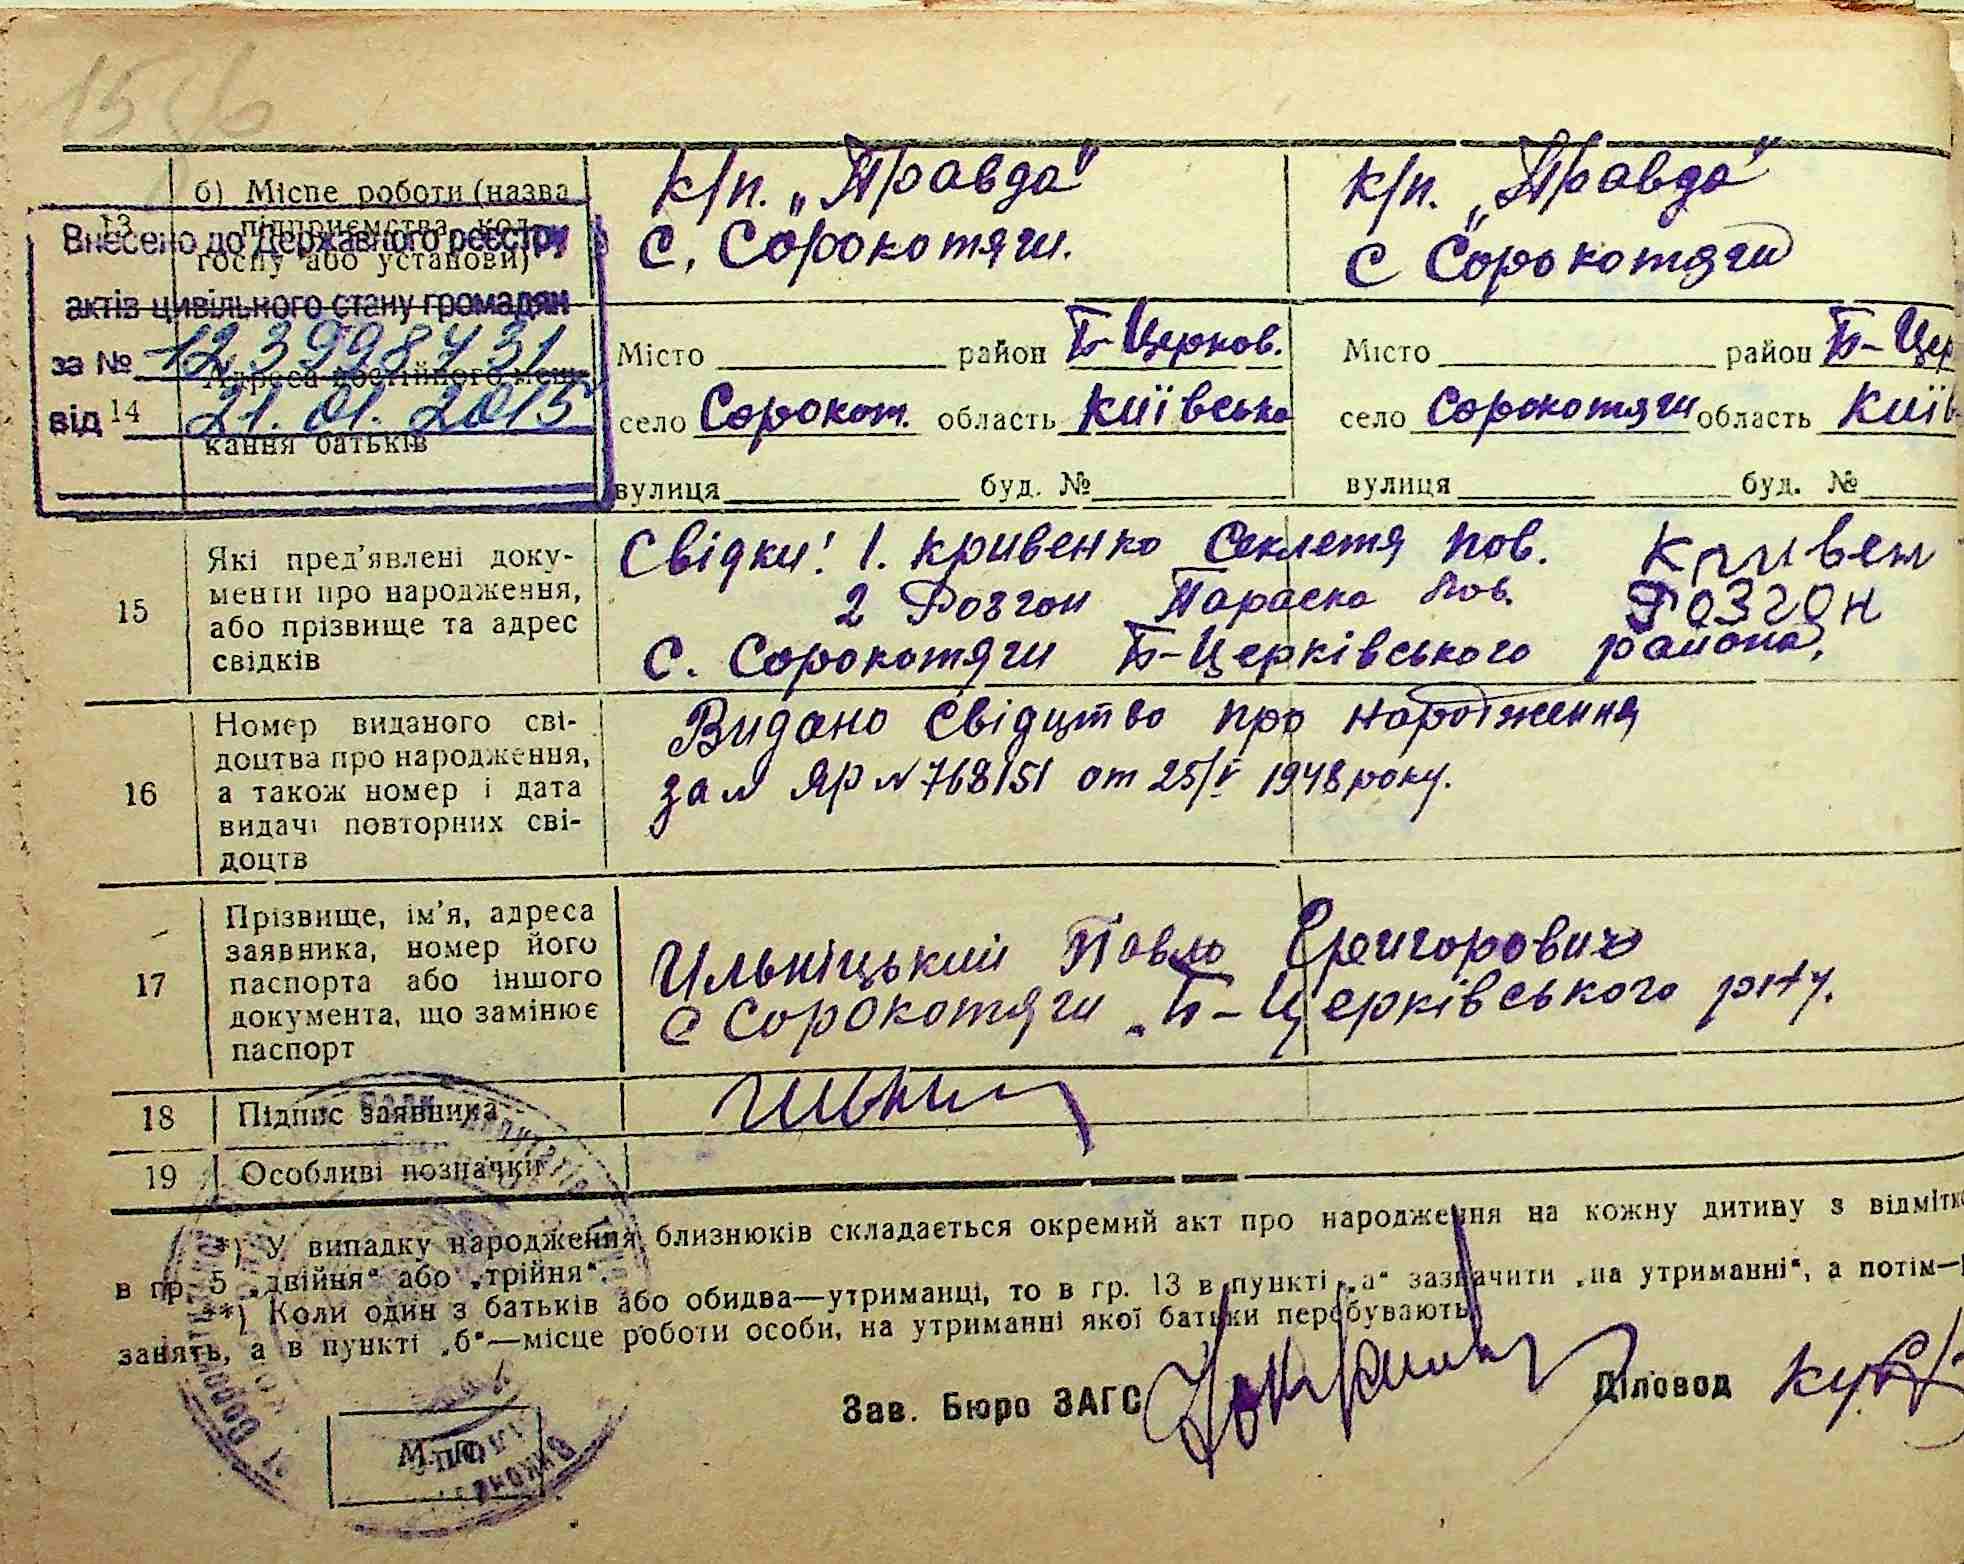 1586
13
б) Місце роботи (назва
підприємства, кол-
госпу або установи)
к/п. „Правда"
с. Сорокотяги.
к/п. „Правда"
с Сорокотяги
Внесено до Державного реєстру
актів цивільного стану громадян
за № 123998731
від 21.01.2015
14
Адреса постійного меш-
кання батьків
Місто район Б-Церков.
село Сорокот. область Київська
вулиця буд. №
Місто район Б-Цер
село Сорокотяги область Київ
вулиця буд. №
15
Які пред'явлені доку-
менти про народження,
або прізвище та адрес
свідків
Свідки! 1. Кривенко Секлетя пов. Кривен
2 Розгон Параска пов. Розгон
с. Сорокотяги Б-Церківського района,
16
Номер виданого сві-
доцтва про народження,
а також номер і дата
видачі повторних сві-
доцтв
Видано свідцтво про народження
за № ЯР № 768151 от 25/V 1948 року.
17
Прізвище, ім'я, адреса
заявника, номер його
паспорта або іншого
документа, що замінює
паспорт
Ильніцький Павло Григорович
с Сорокотяги Б-Церківського р-ну.
18
Підпис заявника
19
Особливі позначки
*) У випадку народження близнюків складається окремий акт про народження на кожну дитину з відмітко
в гр. 5 „двійня“ або „трійня“.
**) Коли один з батьків або обидва—утриманці, то в гр. 13 в пункті „а“ зазначити „на утриманні“, а потім—
занять, а в пункті „б“—місце роботи особи, на утриманні якої батьки перебувають.
Зав. Бюро ЗАГС Діловод
М. П.